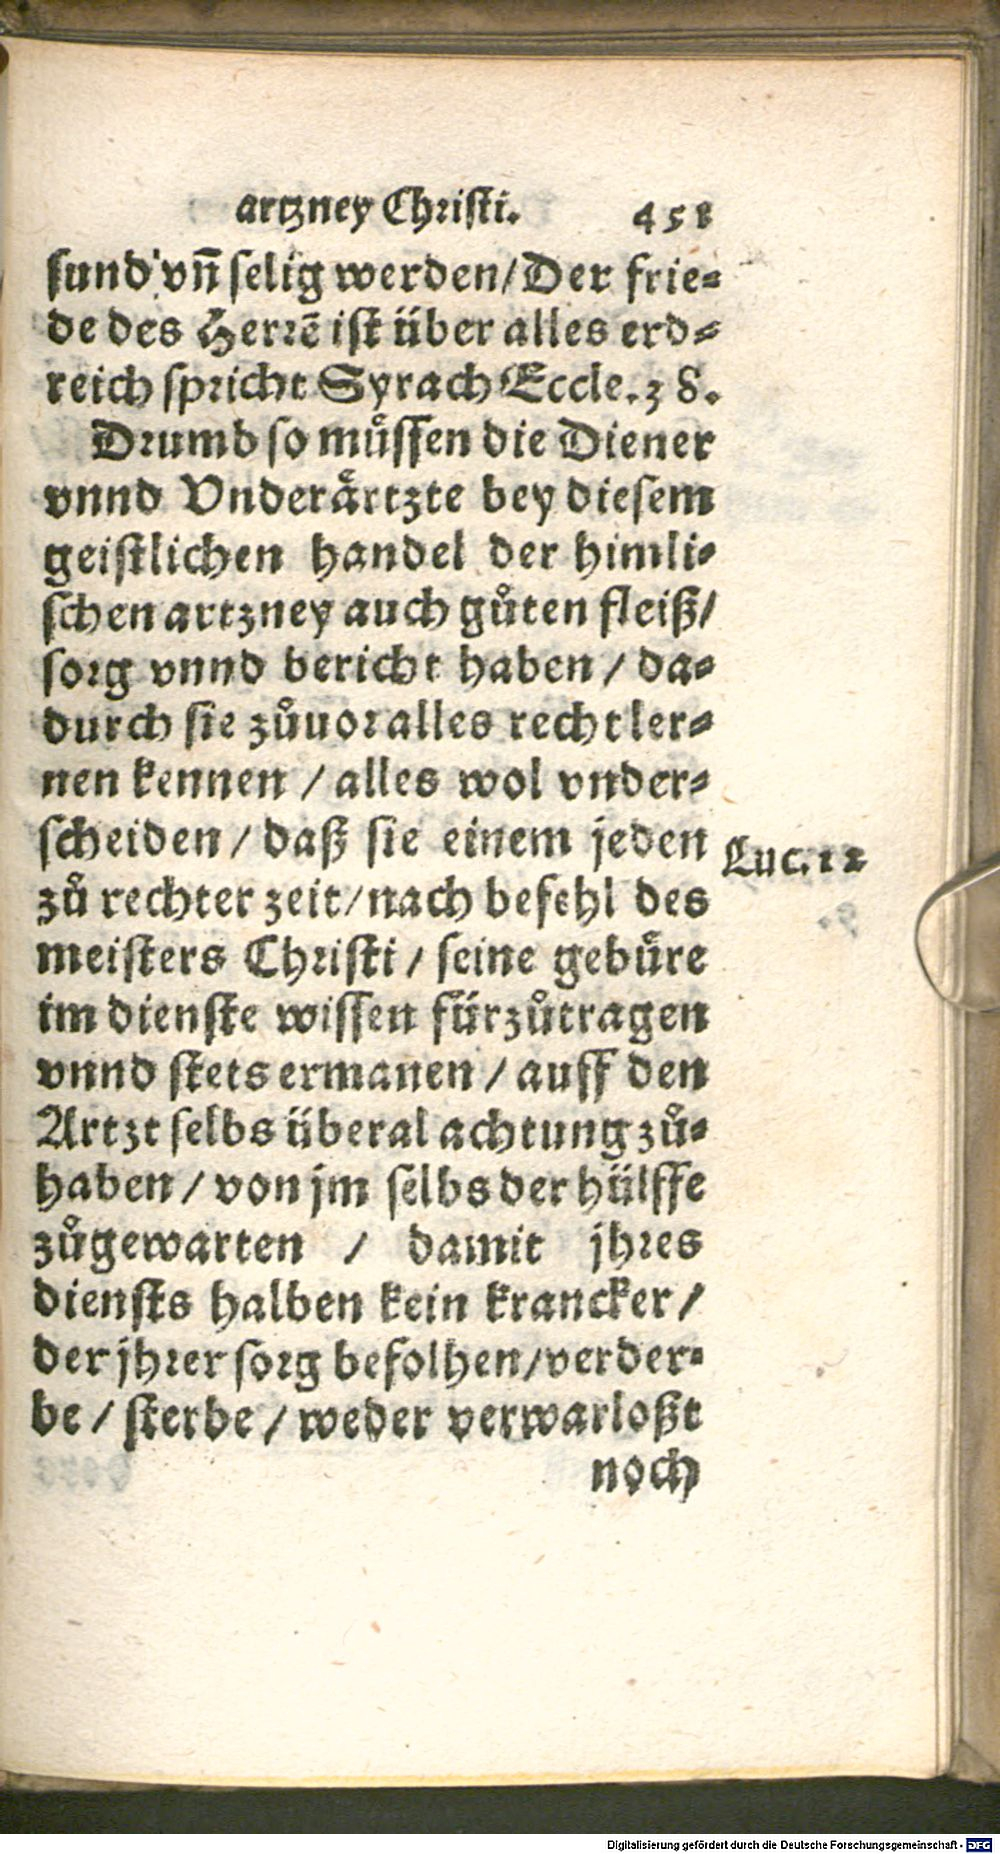 artzney Christi. 458
sund vñ selig werden/Der frie-
de des Herrē ist über alles erd-
reich spricht Syrach Eccle.38.
Drumb so můssen die Diener
vnnd Vnderårtzte bey diesem
geistlichen handel der himli-
schen artzney auch gůten fleiß/
sorg vnnd bericht haben / da-
durch sie zůuor alles recht ler-
nen kennen / alles wol vnder-
scheiden / daß sie einem jeden
Luc. 12
zů rechter zeit/nach befehl des
meisters Christi / seine gebüre
im dienste wissen fürzůtragen
vnnd stets ermanen / auff den
Artzt selbs überal achtung zů-
haben / von jm selbs der hülffe
zůgewarten / damit jhres
diensts halben kein krancker /
der jhrer sorg befolhen/verder-
be / sterbe / weder verwarloßt
noch
Digitalisierung gefördert durch die Deutsche Forschungsgemeinschaft - DFG